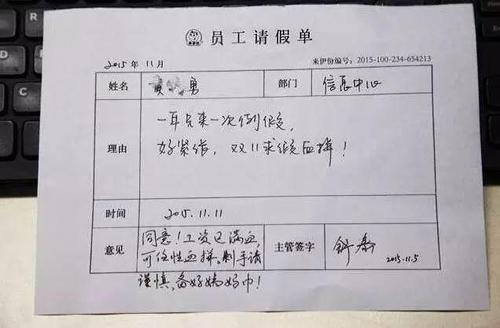 员工请假单
2015年11月
来伊份编号：2015-100-234-654213
姓名 勇 部门 信息中心
理由
一年只来一次例假,
好紧张, 双11求假血拼!
时间 2015.11.11
意见
同意!工资已满血,
可任性血拼。剁手请
谨慎,备好姨妈巾!
主管签字
2015.11.5